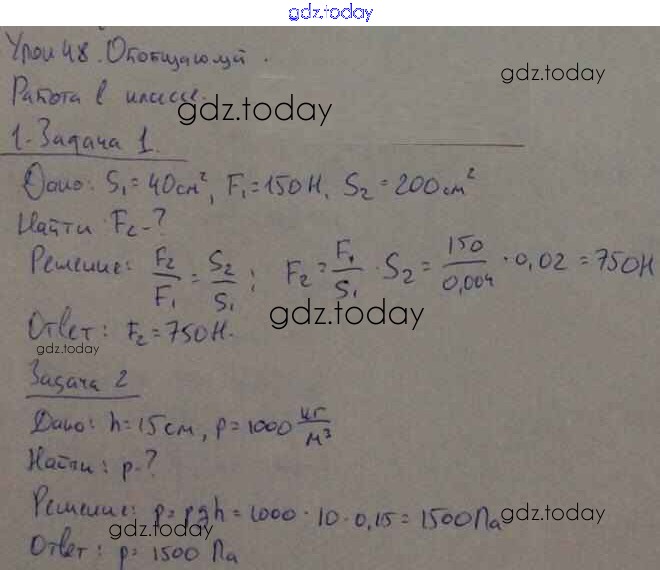 gdz.today
Урок 48. Обобщающий.
gdz.today
Работа в классе.
gdz.today
1. Задача 1.
Дано: S₁ = 40 см², F₁ = 150 Н, S₂ = 200 см²
Найти F₂ - ?
Решение: F₂/F₁ = S₂/S₁; F₂ = F₁/S₁ · S₂ = 150/0,004 · 0,02 = 750 Н
gdz.today
Ответ: F₂ = 750 Н.
gdz.today
Задача 2
Дано: h = 15 см, ρ = 1000 кг/м³
Найти: p - ?
Решение: p = ρgh = 1000 · 10 · 0,15 = 1500 Па
gdz.today
gdz.today
Ответ: p = 1500 Па